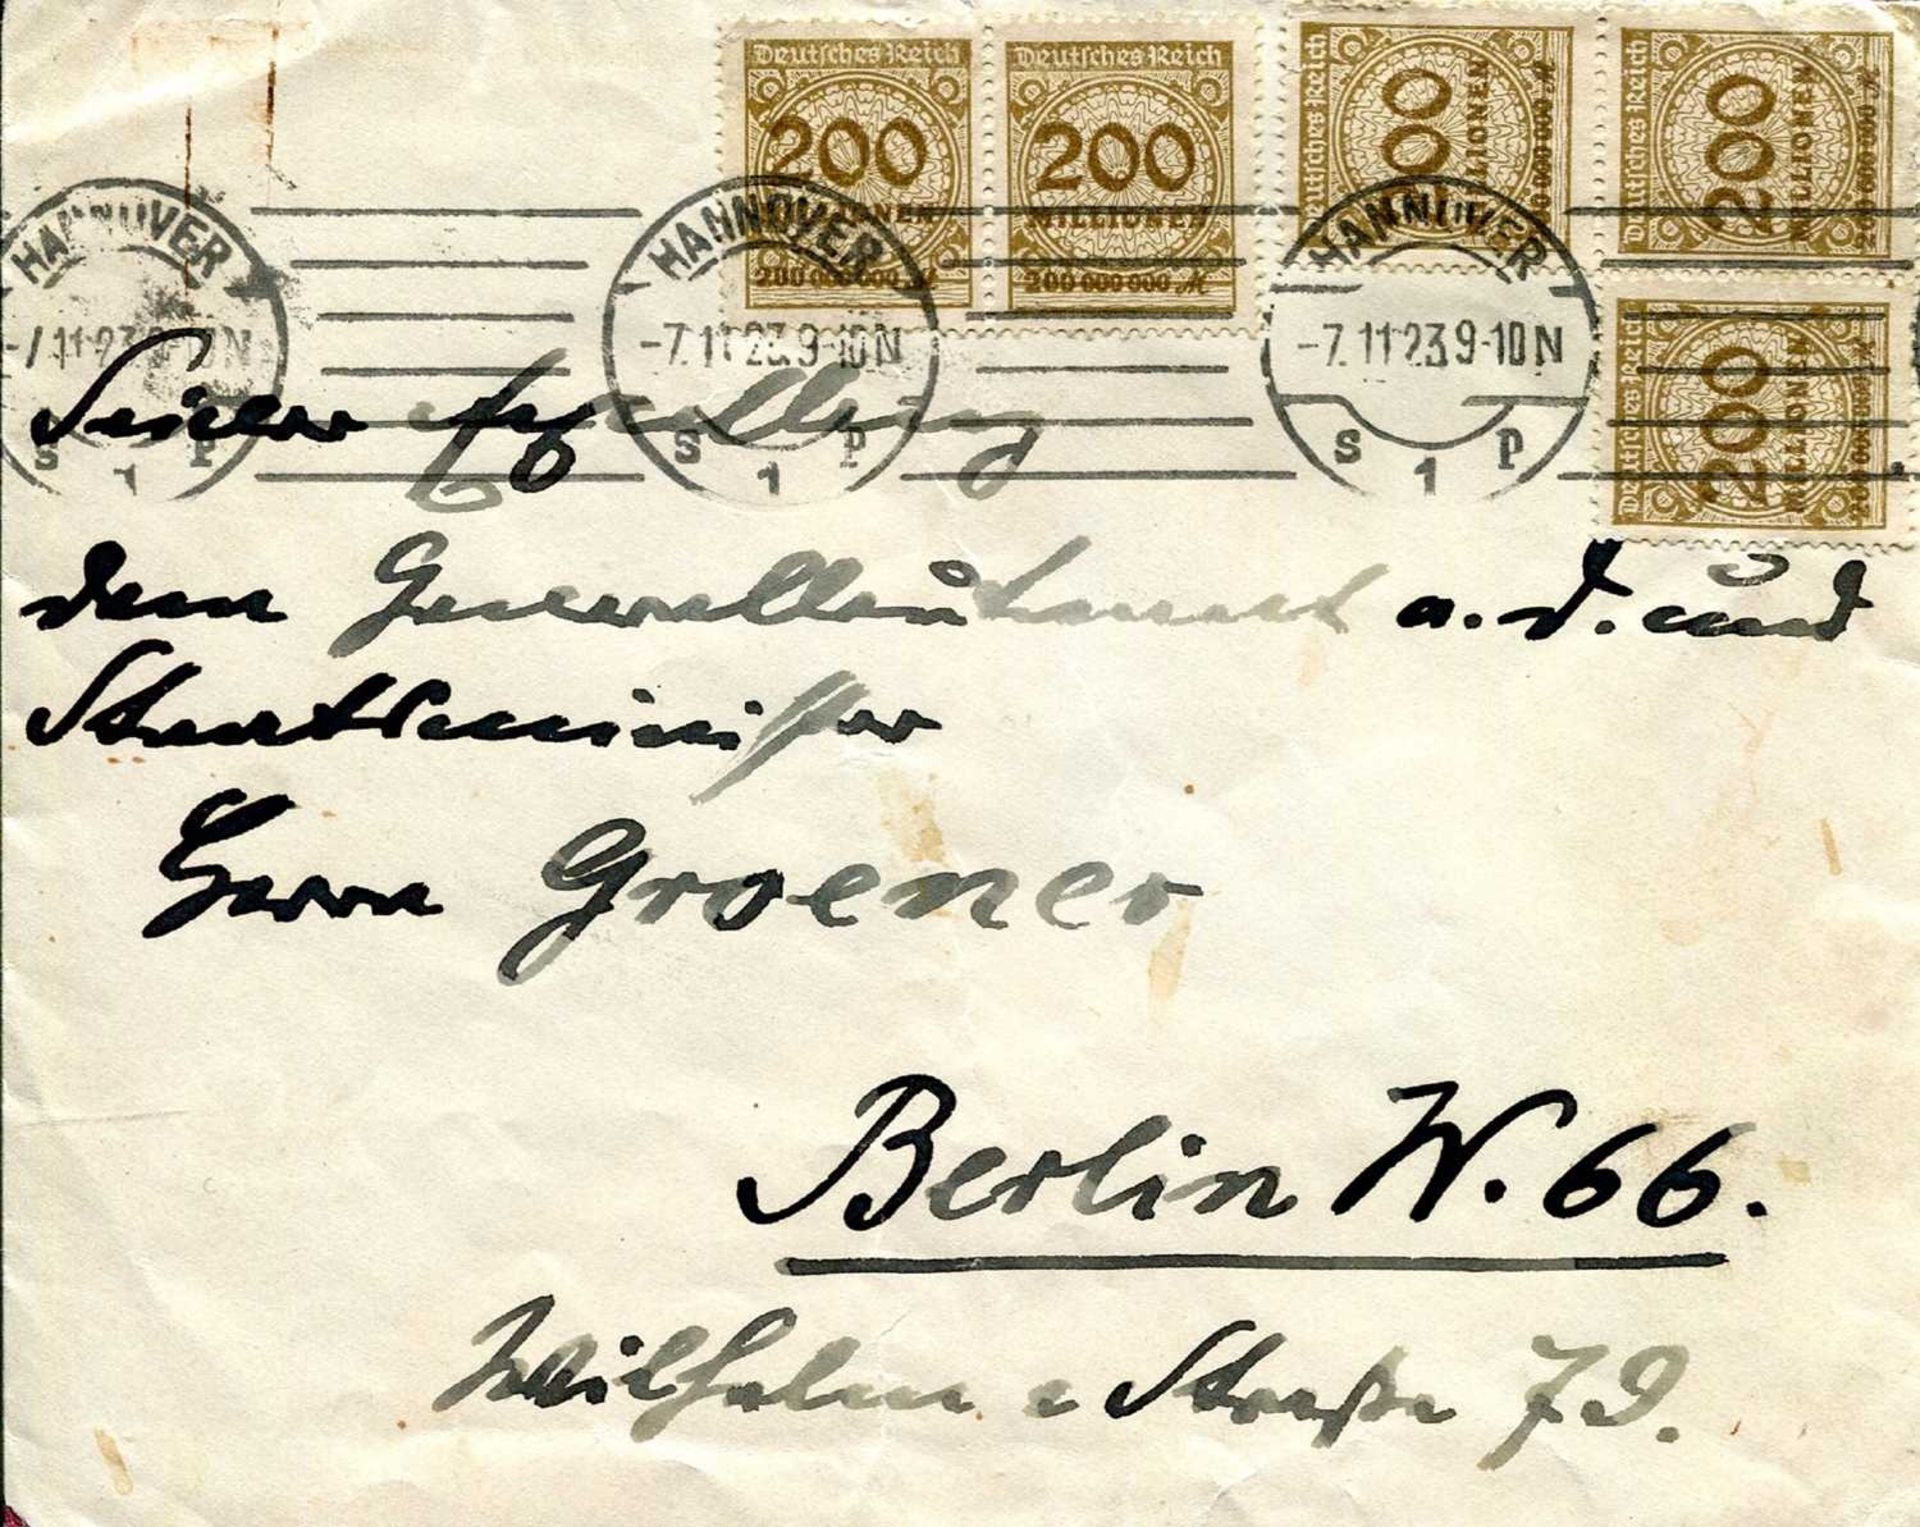 Deutsches Reich Deutsches Reich Deutsches Reich Deutsches Reich
200 200 200 200
MILLIONEN MILLIONEN MILLIONEN MILLIONEN
200 000 000 M 200 000 000 M 200 000 000 M 200 000 000 M
Deutsches Reich
200
MILLIONEN
200 000 000 M
HANNOVER HANNOVER HANNOVER
-7.11.23.9-10N -7.11.23.9-10N -7.11.23.9-10N
S 1 P S 1 P S 1 P
Seiner Exzellenz
dem Generalleutnant a.D. und
Staatsminister
Herrn Groener
Berlin W. 66.
Wilhelm-Straße 79.